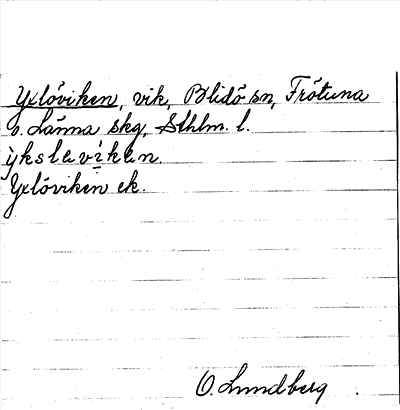 Yxlöviken, vik, Blidö sn, Frötuna
o. Länna skg, Sthlm. l.
ỳkslevìken.
Yxlöviken ek.
O. Lundberg